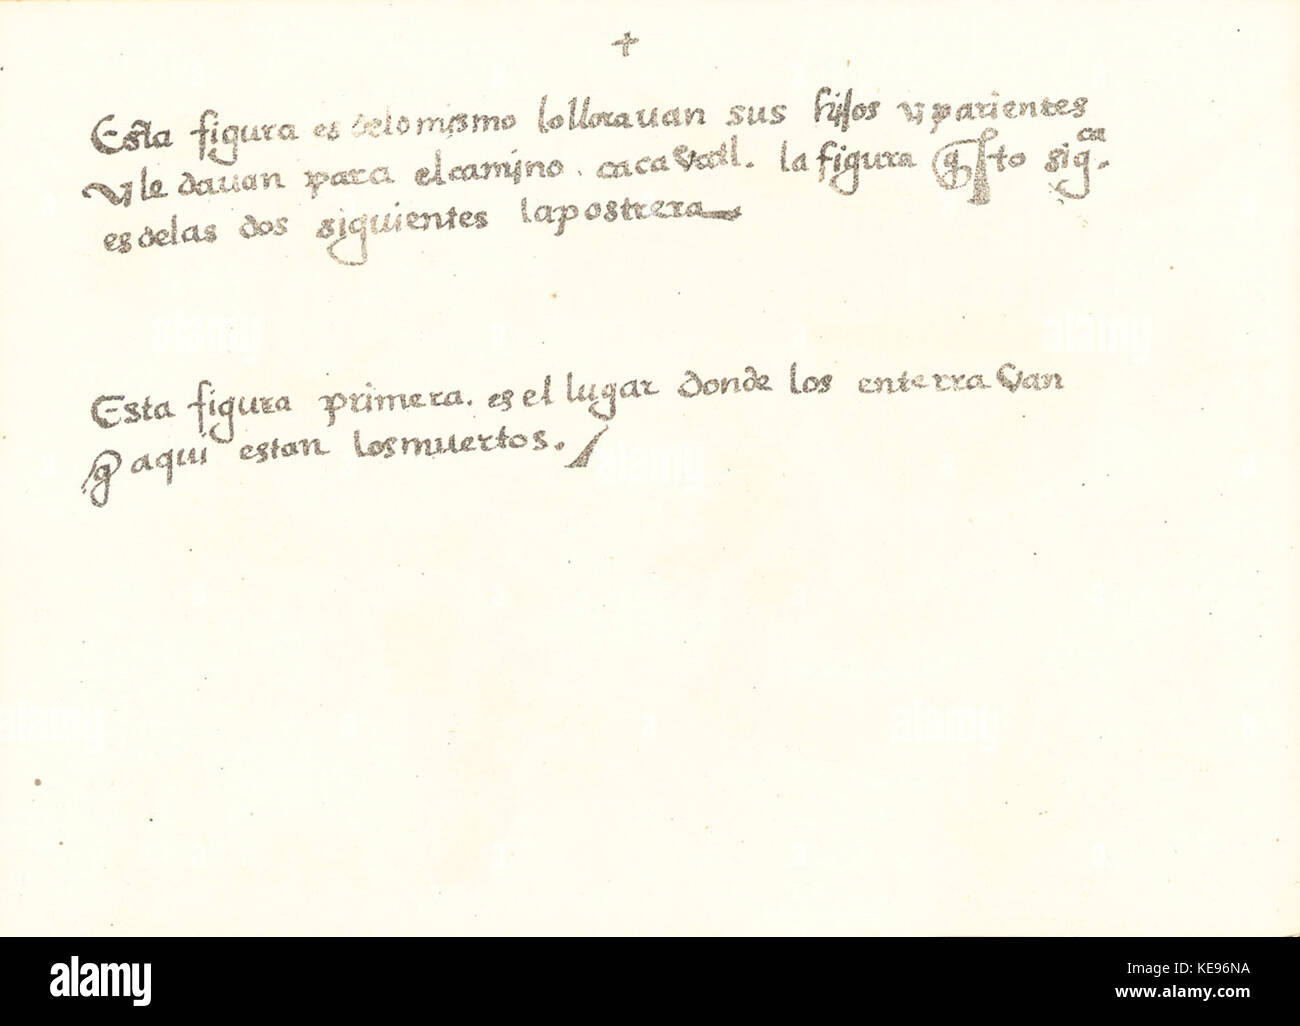 +
Esta figura es de lo mismo lo lloravan sus hijos y parientes
y le davan para el camino. cacavatl. la figura
es de las dos siguientes la postrera
Esta figura primera. es el lugar donde los enterravan
q aqui estan los muertos.
alamy
Image ID: KE96NA
www.alamy.com